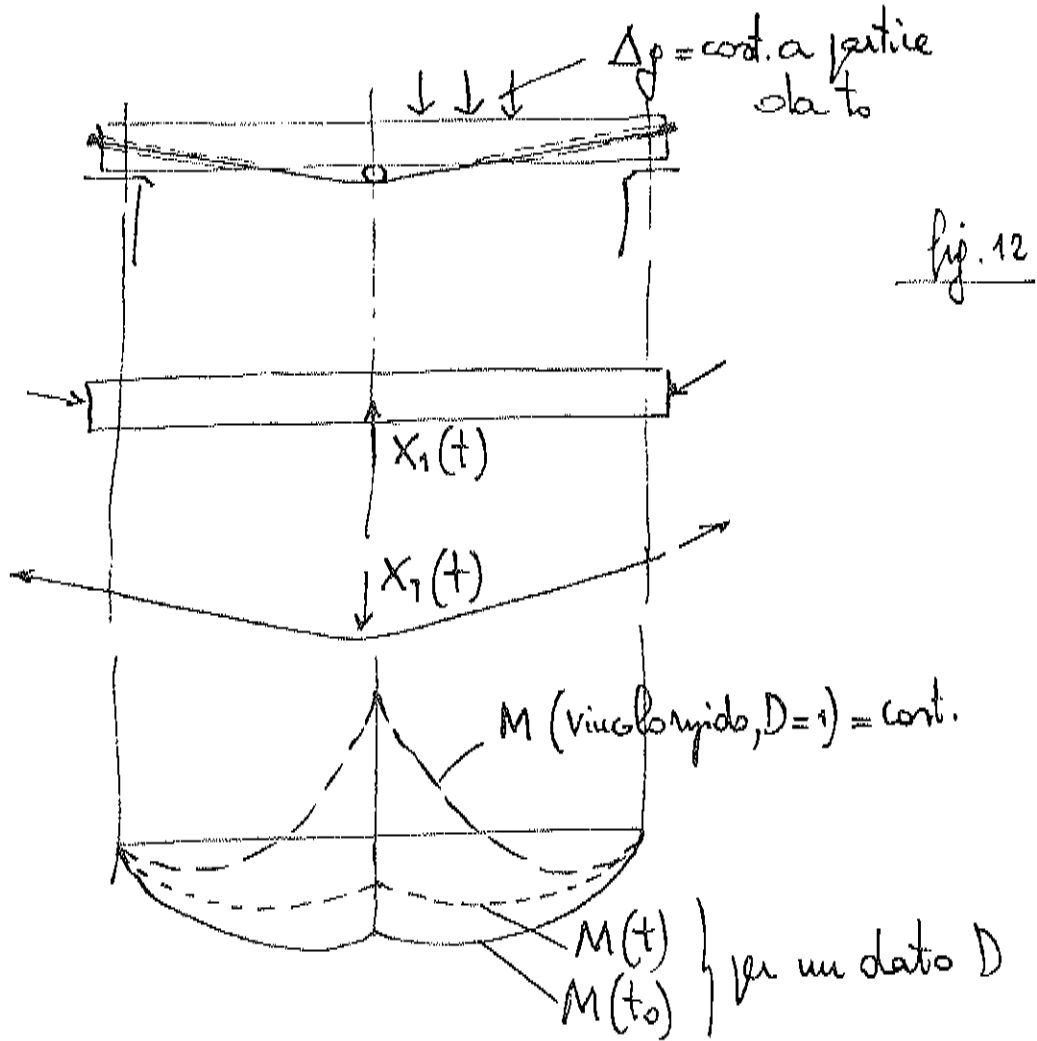 Δg = cost. a partire
da t₀
fig. 12
X₁(t)
X₁(t)
M (vincolo rigido, D=1) = cost.
M(t)
M(t₀)
per un dato D